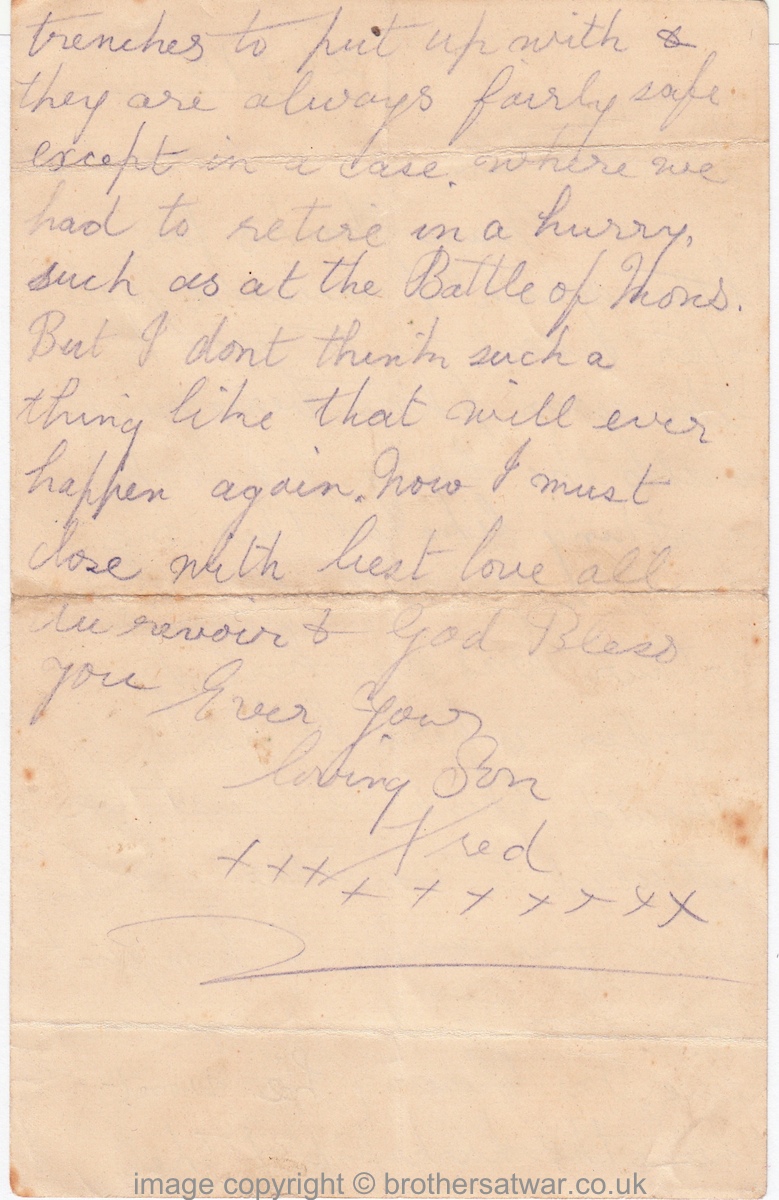 trenches to put up with &
they are always fairly safe
except in a case. where we
had to retire in a hurry,
such as at the Battle of Mons.
But I dont think such a
thing like that will ever
happen again. Now I must
close with best love all
Au revoir & God Bless
you Ever Your
loving Son
Fred
x x x x x x x x x x
image copyright © brothersatwar.co.uk